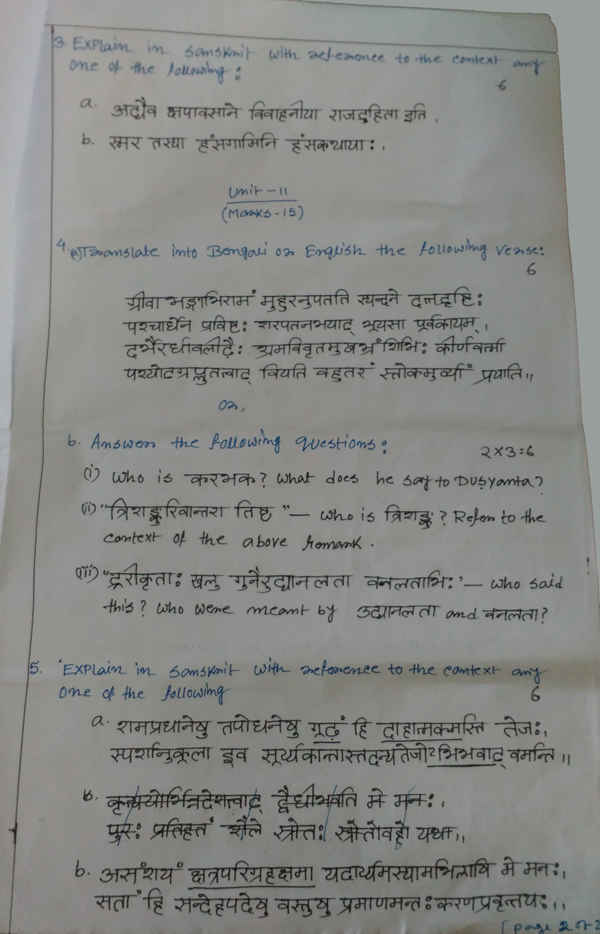 3. Explain in Sanskrit with reference to the context any
one of the following :
6
a. अद्यैव क्षपावसाने विवाहनीया राजदुहिता इति ।
b. स्मर तस्या हंसगामिनि हंसकथायाः ।
Unit-II
(Marks-15)
4. a) Translate into Bengali or English the following verse:
6
ग्रीवा भङ्गाभिरामं मुहुरनुपतति स्यन्दने दत्तदृष्टिः
पश्चार्धेन प्रविष्टः शरपतनभयाद् भूयसा पूर्वकायम् ।
दर्भैरर्धावलीढैः श्रमविवृतमुखभ्रंशिभिः कीर्णवर्त्मा
पश्योदग्रप्लुतत्वाद् वियति बहुतरं स्तोकमुर्व्यां प्रयाति ।।
or,
b. Answer the following questions :
2x3=6
(i) Who is करभक? What does he say to Dusyanta?
(ii) "त्रिशङ्कुरिवान्तरा तिष्ठ" — who is त्रिशङ्कु? Refer to the
context of the above remark.
(iii) "दूरीकृताः खलु गुनैरुद्यानलता वनलताभिः" — who said
this? who were meant by उद्यानलता and वनलता?
5. Explain in Sanskrit with reference to the context any
one of the following
6
a. शमप्रधानेषु तपोधनेषु गूढं हि दाहात्मकमस्ति तेजः ।
स्पर्शानुकूला इव सूर्य्यकान्तास्तदन्यतेजोऽभिभवाद् वमन्ति ।।
b. कृत्ययोर्भिन्नदेशत्वाद् द्वैधीभवति मे मनः ।
पुरः प्रतिहतं शैले स्रोतः स्रोतोवहो यथा ।।
b. असंशयं क्षत्रपरिग्रहक्षमा यदार्य्यमस्यामभिलाषि मे मनः ।
सतां हि सन्देहपदेषु वस्तुषु प्रमाणमन्तःकरणप्रवृत्तयः ।।
[page 2 of